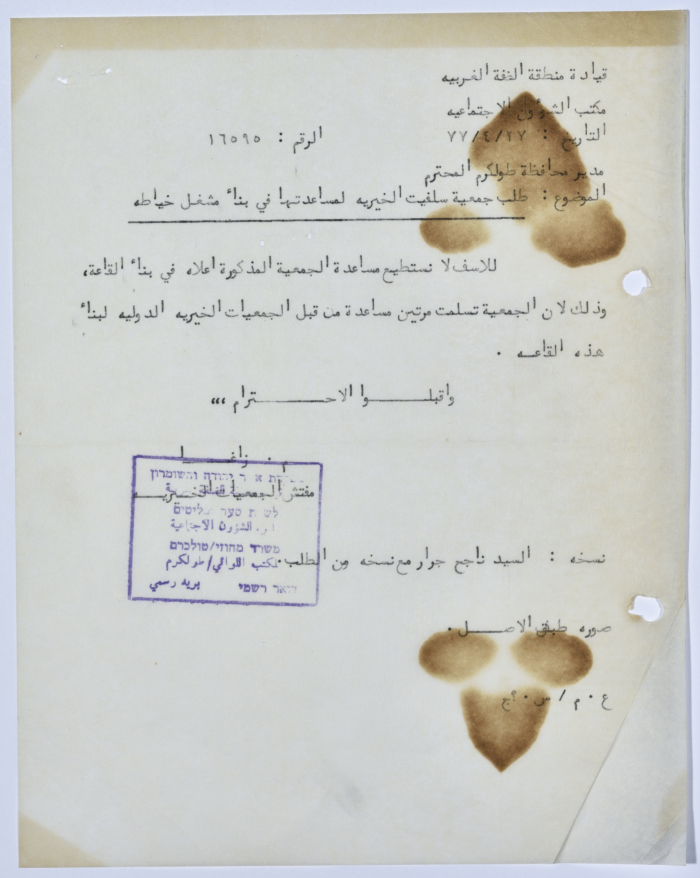 قيادة منطقة الضفة الغربيه
مكتب الشؤون الاجتماعيه
التاريخ : ٧٧/٤/٢٧ الرقم : ١٦٥٩٥
مدير محافظة طولكرم المحترم
الموضوع : طلب جمعية سلفيت الخيريه لمساعدتها في بناء مشغل خياطه
للاسف لا نستطيع مساعدة الجمعية المذكورة اعلاه في بناء القاعة،
وذلك لان الجمعية تسلمت مرتين مساعدة من قبل الجمعيات الخيريه الدوليه لبناء
هذه القاعـه .
واقبلـــــوا الاحـــــترام ،،،
م . زاغـــا
مفتش الجمعيات الخـيريـــه
יהודה והשומרון
לש ת סער
الشؤون الاجتماعية
משרד מחוזי/טולכרם
مكتب اللوائي/طولكرم
דואר רשמי بريد رسمي
نسخه : السيد ناجح جرار مع نسخه من الطلب.
صوره طبق الاصـــل .
ع . م / س .